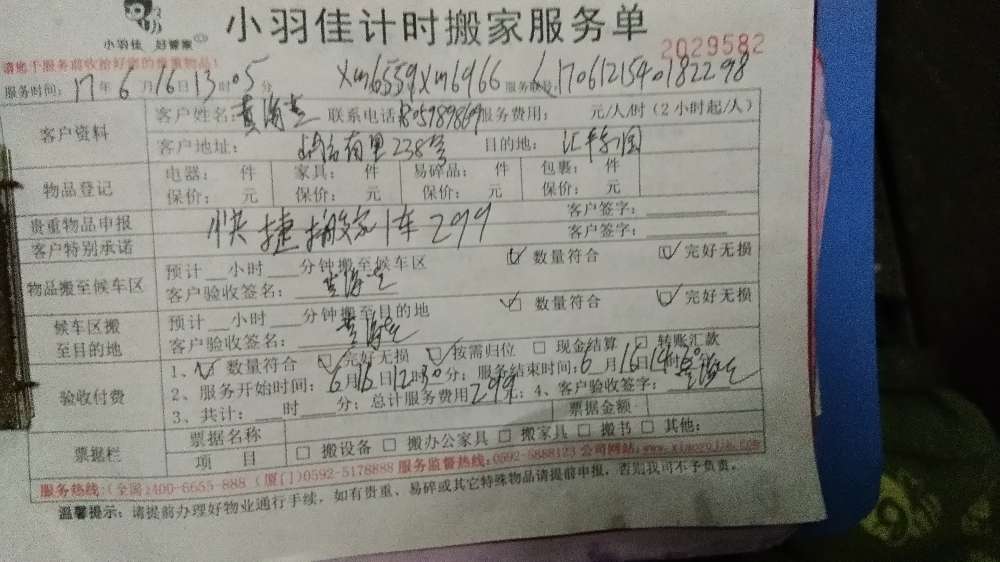 小羽佳 好管家
小羽佳计时搬家服务单
2029582
服务时间：17年6月16日13时05分 Xm6559 Xm6966 17061215401822298
客户资料
客户姓名： 联系电话 服务费用： 元/人/时（2小时起/人）
客户地址： 238号 目的地：
物品登记
电器： 件 家具： 件 易碎品： 件 包裹： 件
保价： 元 保价： 元 保价： 元 保价： 元
贵重物品申报 客户签字：
快捷搬家1车299
客户特别承诺 客户签字：
物品搬至候车区
预计__小时___分钟搬至候车区 ☑ 数量符合 ☑ 完好无损
客户验收签名：
候车区搬至目的地
预计__小时___分钟搬至目的地 ☑ 数量符合 ☑ 完好无损
客户验收签名：
验收付费
1、☑ 数量符合 ☑ 完好无损 ☑ 按需归位 □ 现金结算 □ 转账汇款
2、服务开始时间：6月16日12时30分；服务结束时间：6月16日14时
3、共计：___时___分；总计服务费用299元；4、客户验收签字：
票据栏
票据名称 票据金额
项 目 □ 搬设备 □ 搬办公家具 □ 搬家具 □ 搬书 □ 其他:
服务热线:(全国)400-6655-888 (厦门)0592-5178888 服务监督热线:0592-5888123 公司网站:www.xiaoyujia.com
温馨提示：请提前办理好物业通行手续，如有贵重、易碎或其它特殊物品请提前申报，否则我司不予负责。